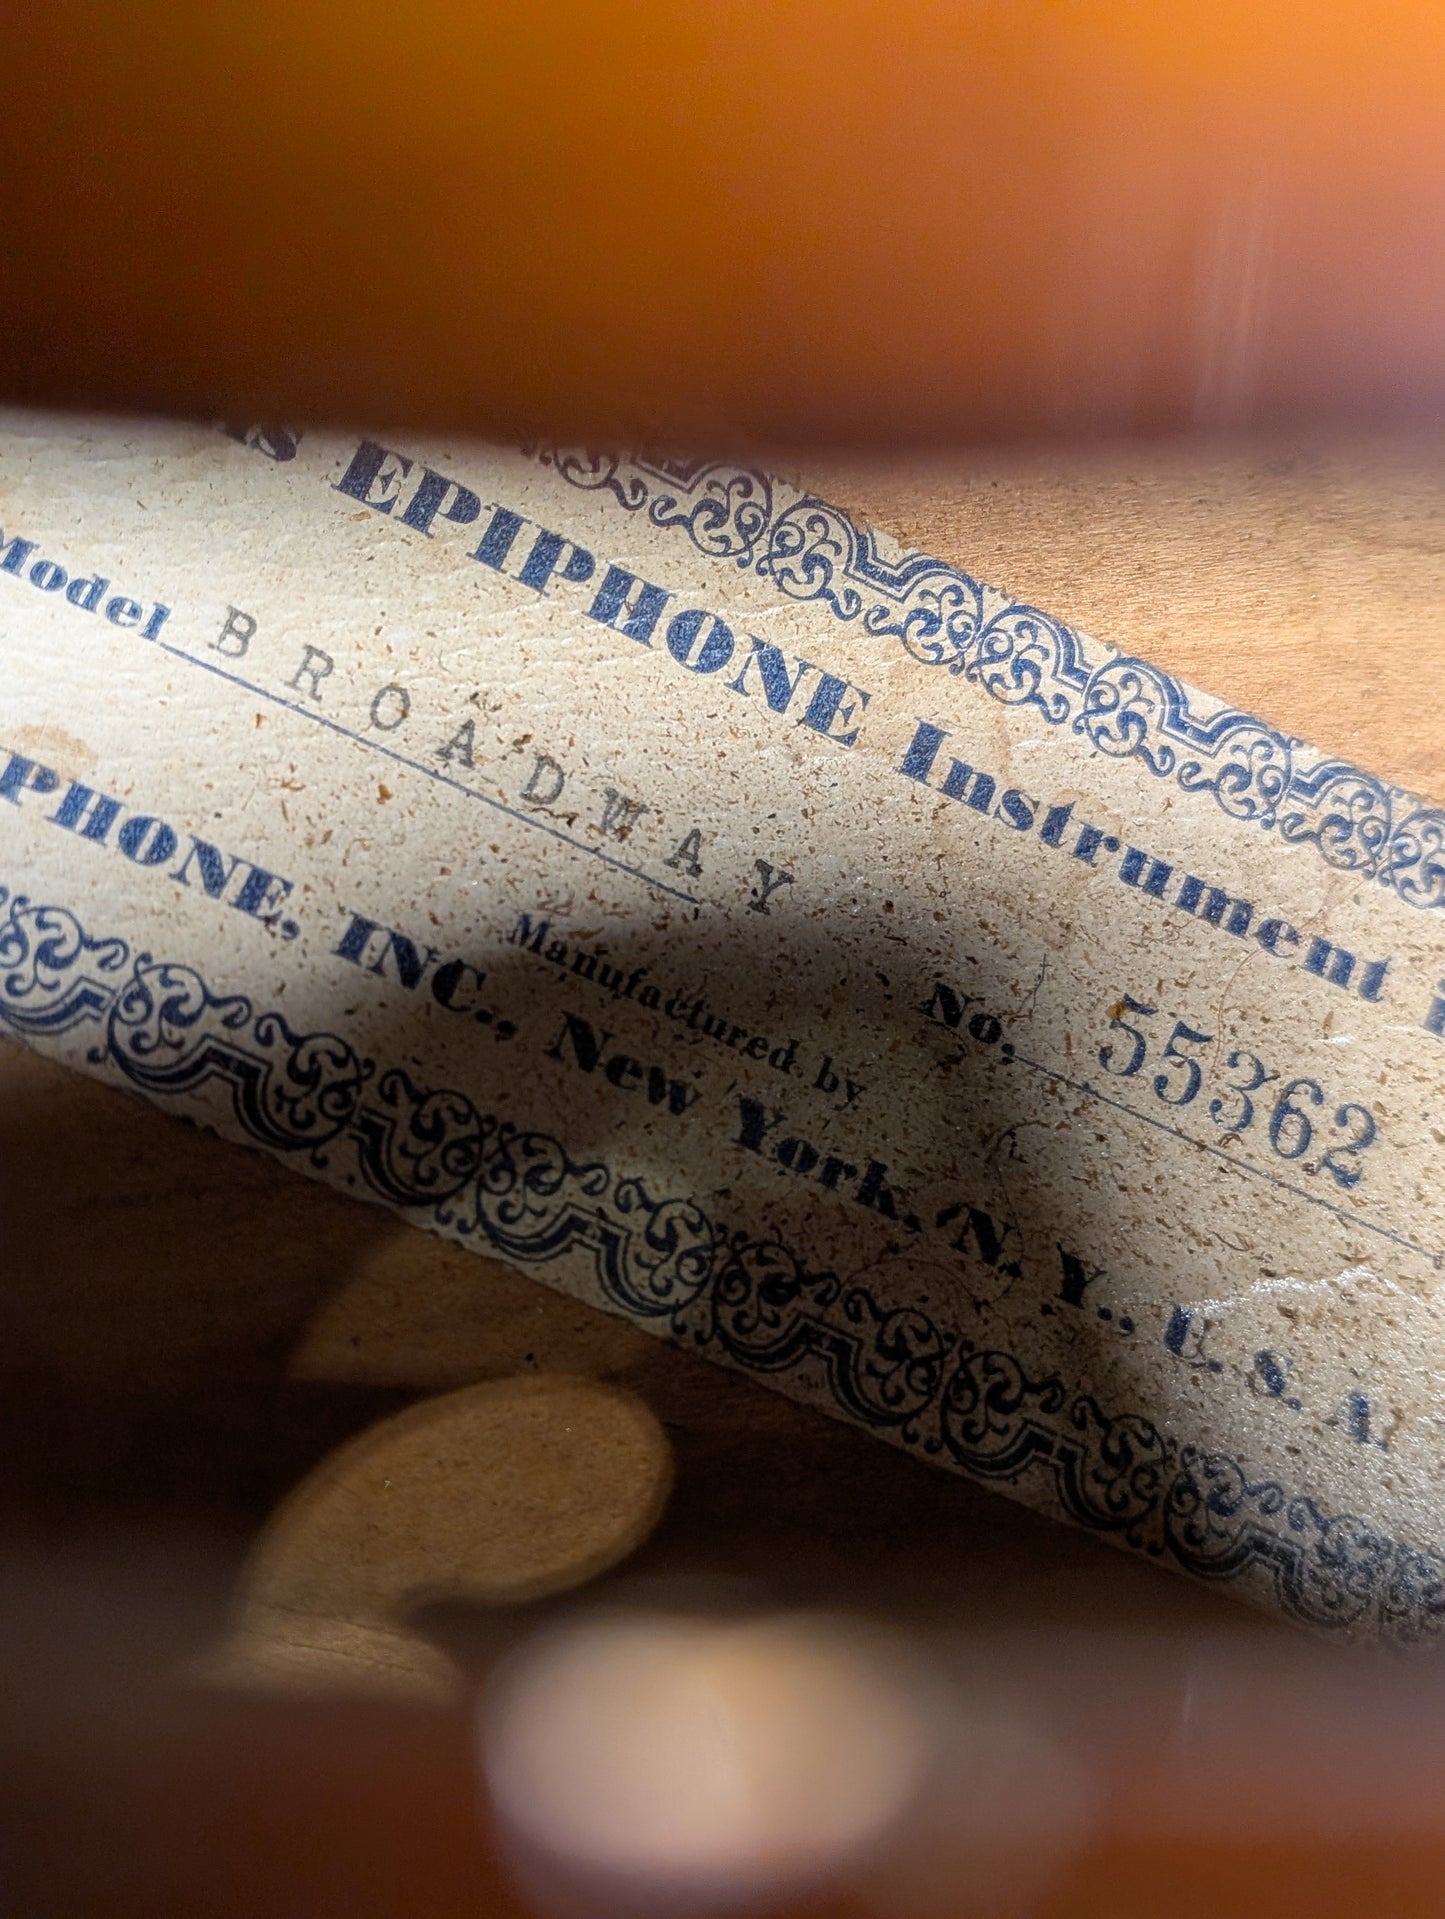 EPIPHONE Instrument
Model BROADWAY No. 55362
Manufactured by
PHONE, INC., New York, N. Y., U. S. A.